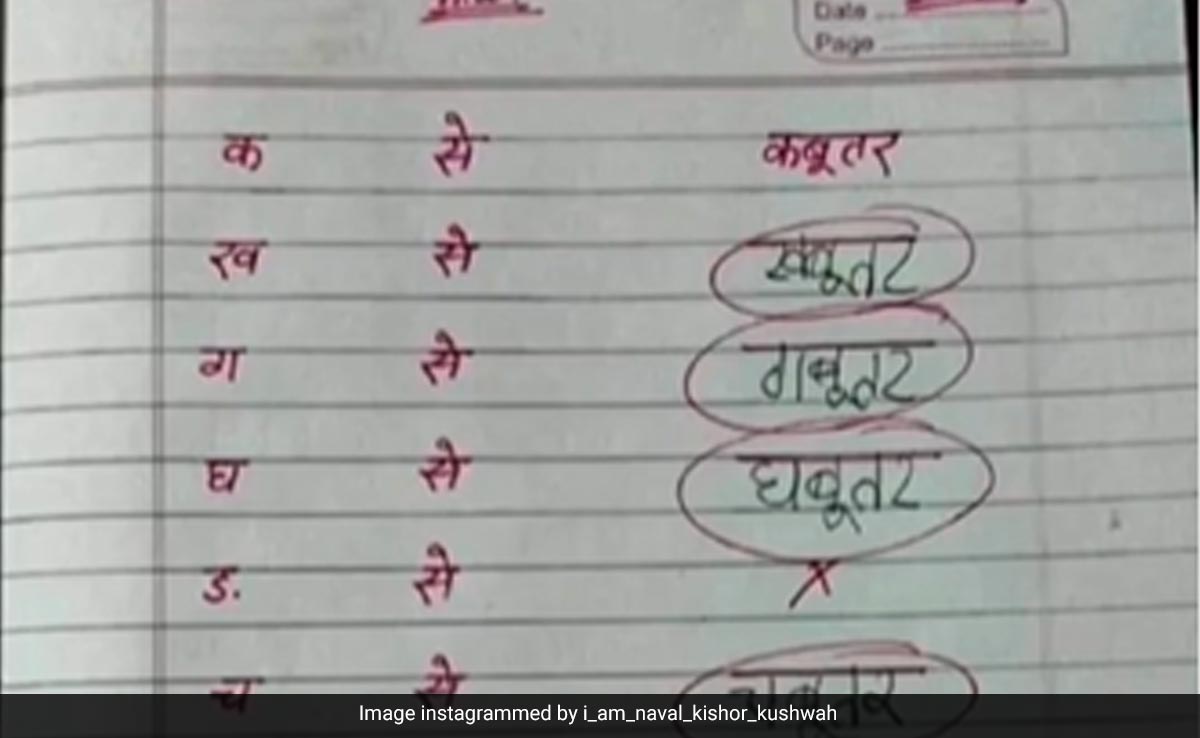 Date
Page
क से कबूतर
ख से खबूतर
ग से गबूतर
घ से घबूतर
ङ से x
च से चबूतर
Image instagrammed by i_am_naval_kishor_kushwah